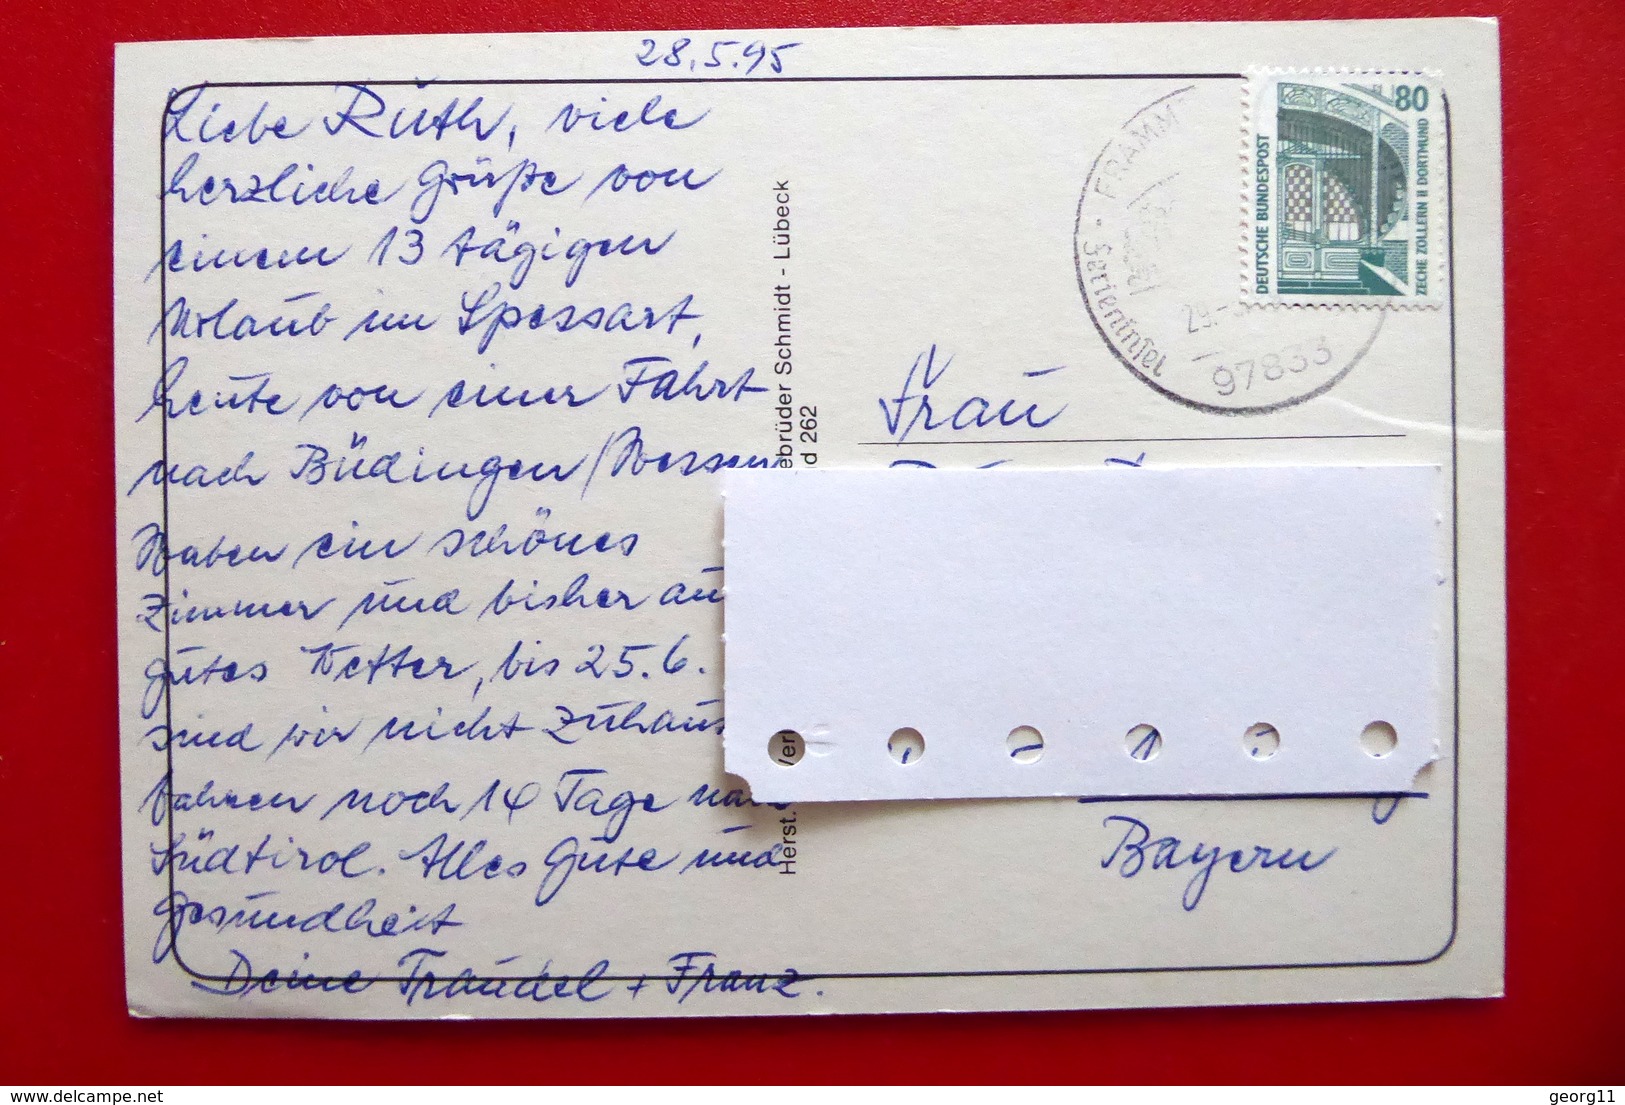 28.5.95
Liebe Ruth, viele
herzliche Grüße von
einem 13 tägigen
Urlaub im Spessart,
heute von einer Fahrt
nach Büdingen/Hessen
Haben ein schönes
Zimmer und bisher au
gutes Wetter, bis 25.6.
sind wir nicht zuhaus
fahren noch 14 Tage nach
Südtirol. Alles Gute und
Gesundheit
Deine Traudel + Franz.
ebrüder Schmidt - Lübeck
d 262
Herst.
Ver
FRAMM
Ferieninsel
29.-
97833
80
DEUTSCHE BUNDESPOST
ZECHE ZOLLERN II DORTMUND
Frau
Bayern
https://www.delcampe.net
georg11